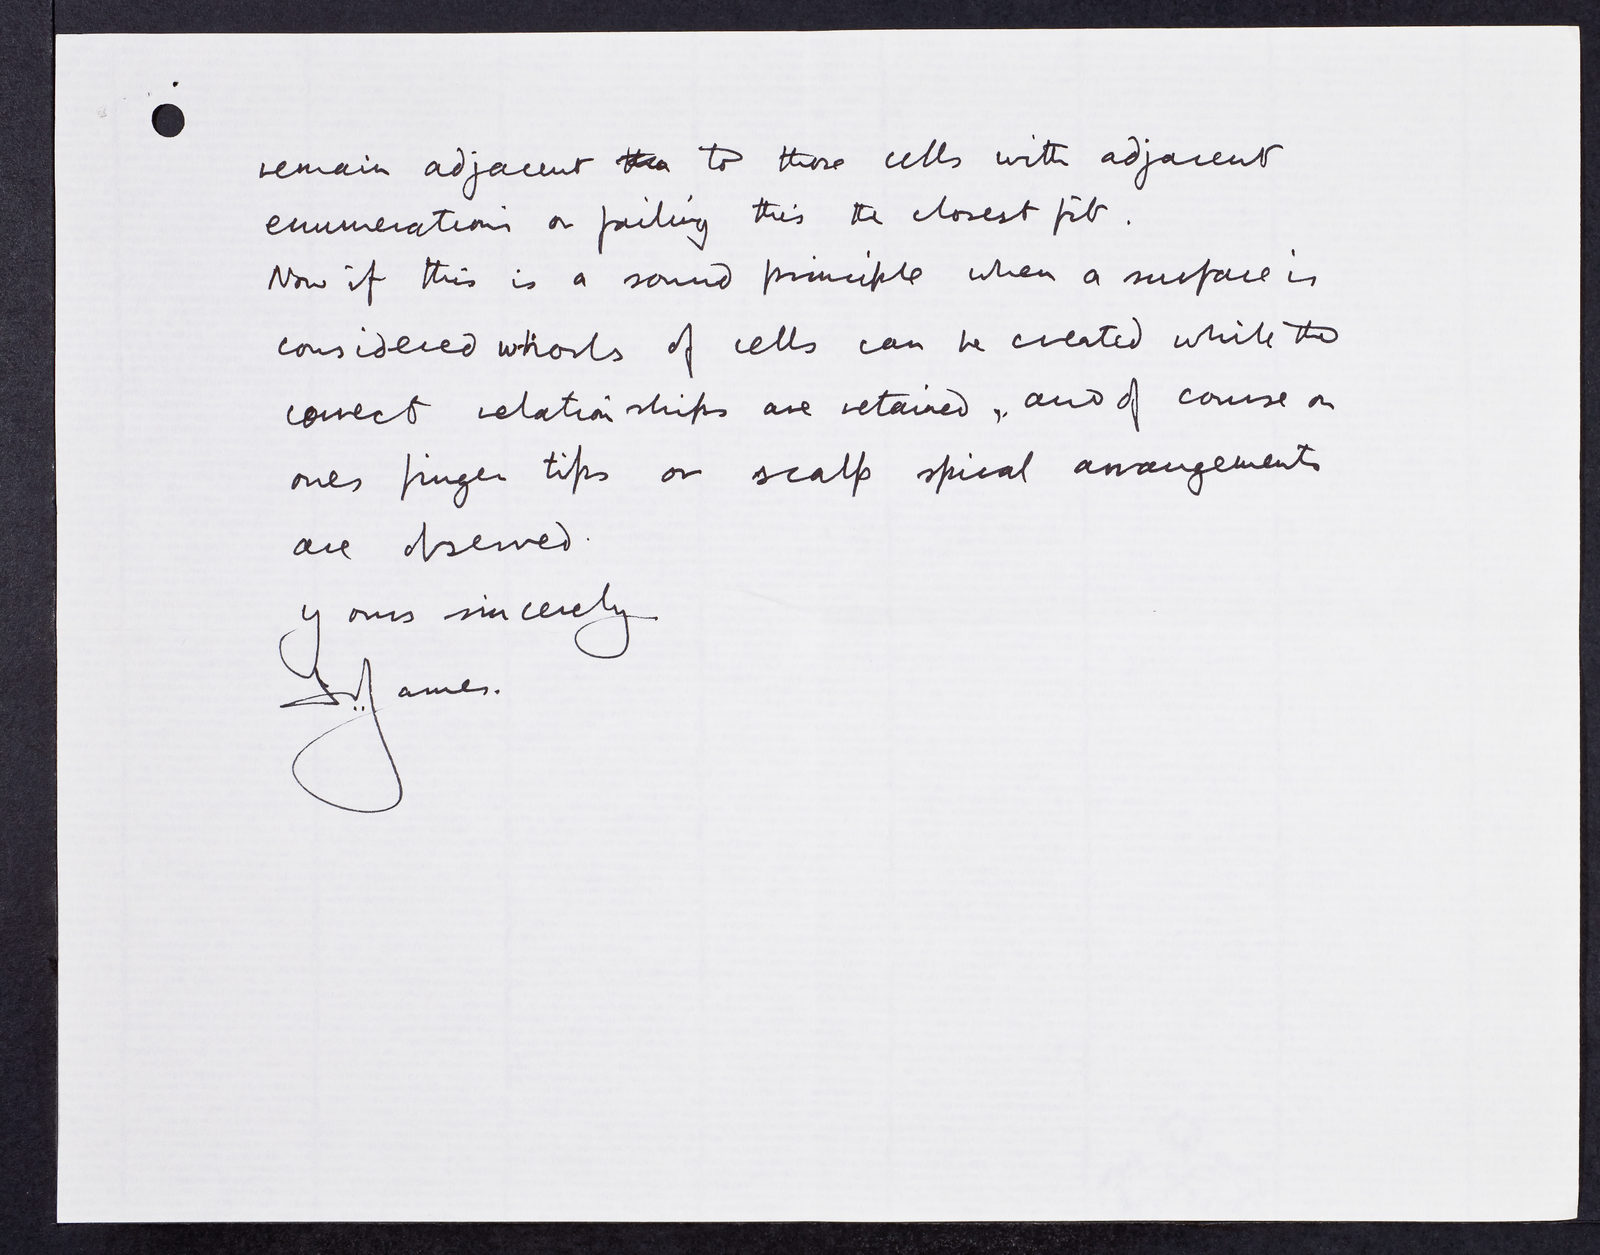 remain adjacent the to those cells with adjacent
enumerations or failing this the closest fit.
Now if this is a sound principle when a surface is
considered whorls of cells can be created while the
correct relationships are retained, and of course on
ones finger tips or scalp spiral arrangements
are observed.
yours sincerely
James.